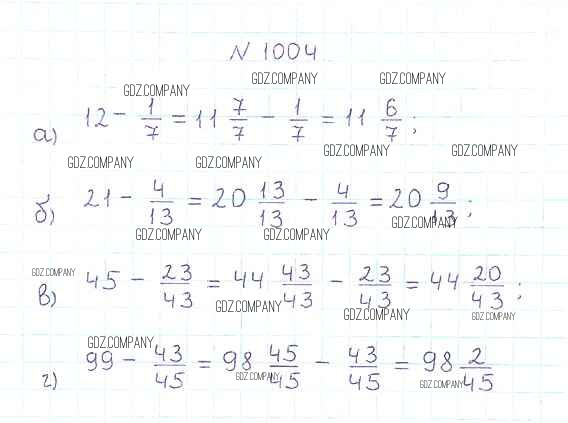 N 1004
GDZ.COMPANY GDZ.COMPANY GDZ.COMPANY
а) 12 - 1/7 = 11 7/7 - 1/7 = 11 6/7;
GDZ.COMPANY GDZ.COMPANY GDZ.COMPANY GDZ.COMPANY
б) 21 - 4/13 = 20 13/13 - 4/13 = 20 9/13;
GDZ.COMPANY GDZ.COMPANY GDZ.COMPANY
GDZ.COMPANY
в) 45 - 23/43 = 44 43/43 - 23/43 = 44 20/43;
GDZ.COMPANY GDZ.COMPANY GDZ.COMPANY
GDZ.COMPANY
г) 99 - 43/45 = 98 45/45 - 43/45 = 98 2/45
GDZ.COMPANY GDZ.COMPANY